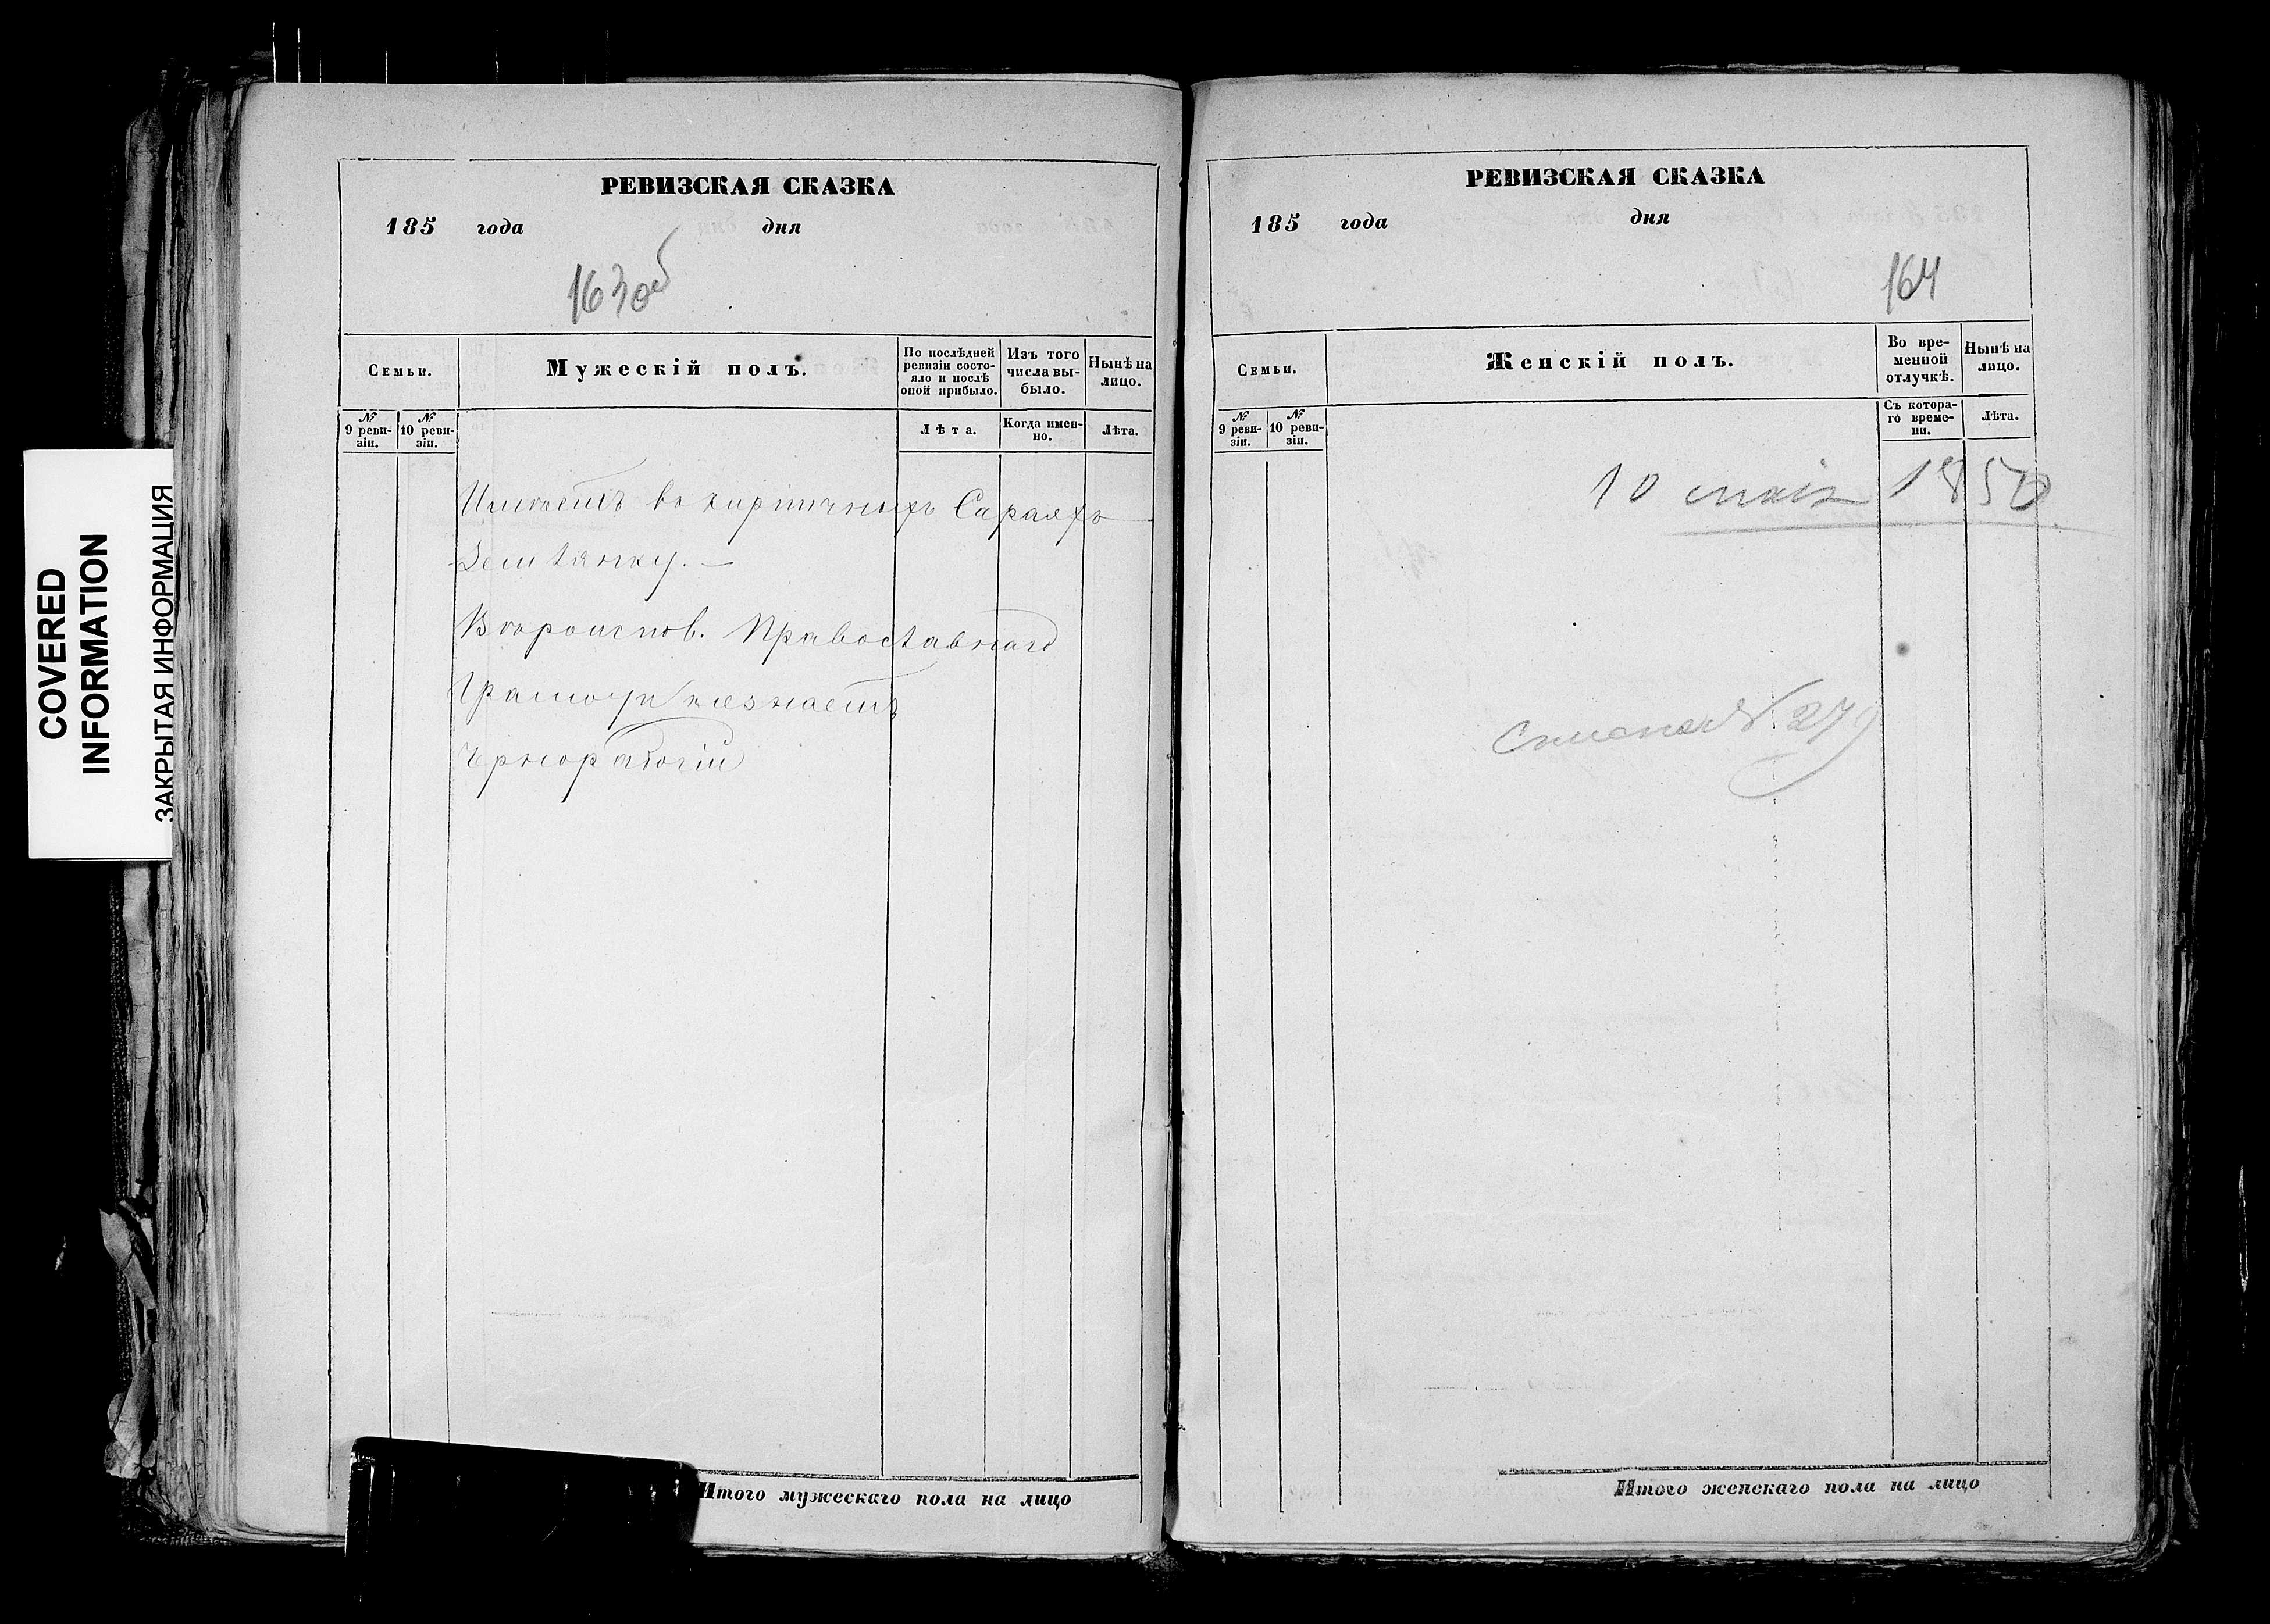 COVERED
INFORMATION
ЗАКРЫТАЯ ИНФОРМАЦИЯ
РЕВИЗСКАЯ СКАЗКА
185 года дня
163об
Семьи.
Мужескій полъ.
По послѣдней
ревизіи состо-
яло и послѣ
оной прибыло.
Изъ того
числа вы-
было.
Нынѣ на
лицо.
№
9 реви-
зіи.
№
10 реви-
зіи.
Лѣта.
Когда имен-
но.
Лѣта.
Имѣетъ въ кирпичныхъ Сараяхъ
Землянку. —
Вѣроиспов. Православнаго
Грамоты незнаетъ
Итого мужескаго пола на лицо
РЕВИЗСКАЯ СКАЗКА
185 года дня
164
Семьи.
Женскій полъ.
Во вре-
менной
отлучкѣ.
Нынѣ на
лицо.
№
9 реви-
зіи.
№
10 реви-
зіи.
Съ котора-
го време-
ни.
Лѣта.
10 мая 1850
№ 279
Итого женскаго пола на лицо